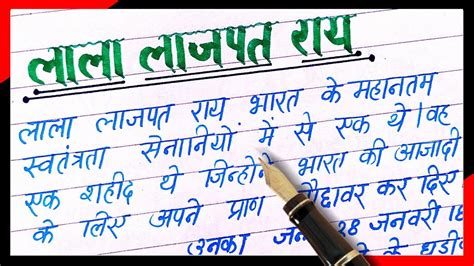 लाला लाजपत राय
लाला लाजपत राय भारत के महानतम
स्वतंत्रता सेनानियों में से एक थे। वह
एक शहीद थे जिन्होंने भारत की आजादी
के लिए अपने प्राण कर दिए
उनका 28 जनवरी
के